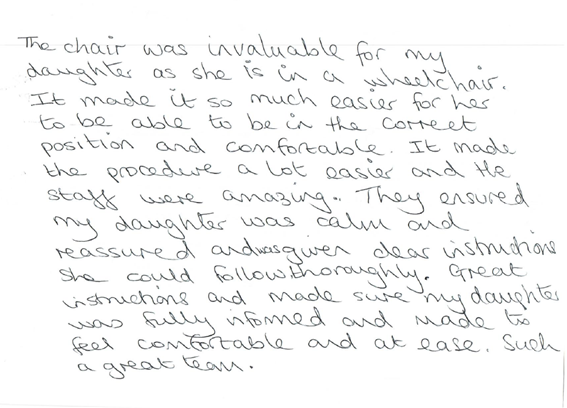 The chair was invaluable for my
daughter as she is in a wheelchair.
It made it so much easier for her
to be able to be in the correct
position and comfortable. It made
the procedure a lot easier and the
staff were amazing. They ensured
my daughter was calm and
reassured and was given clear instructions
she could follow thoroughly. Great
instructions and made sure my daughter
was fully informed and made to
feel comfortable and at ease. Such
a great team.